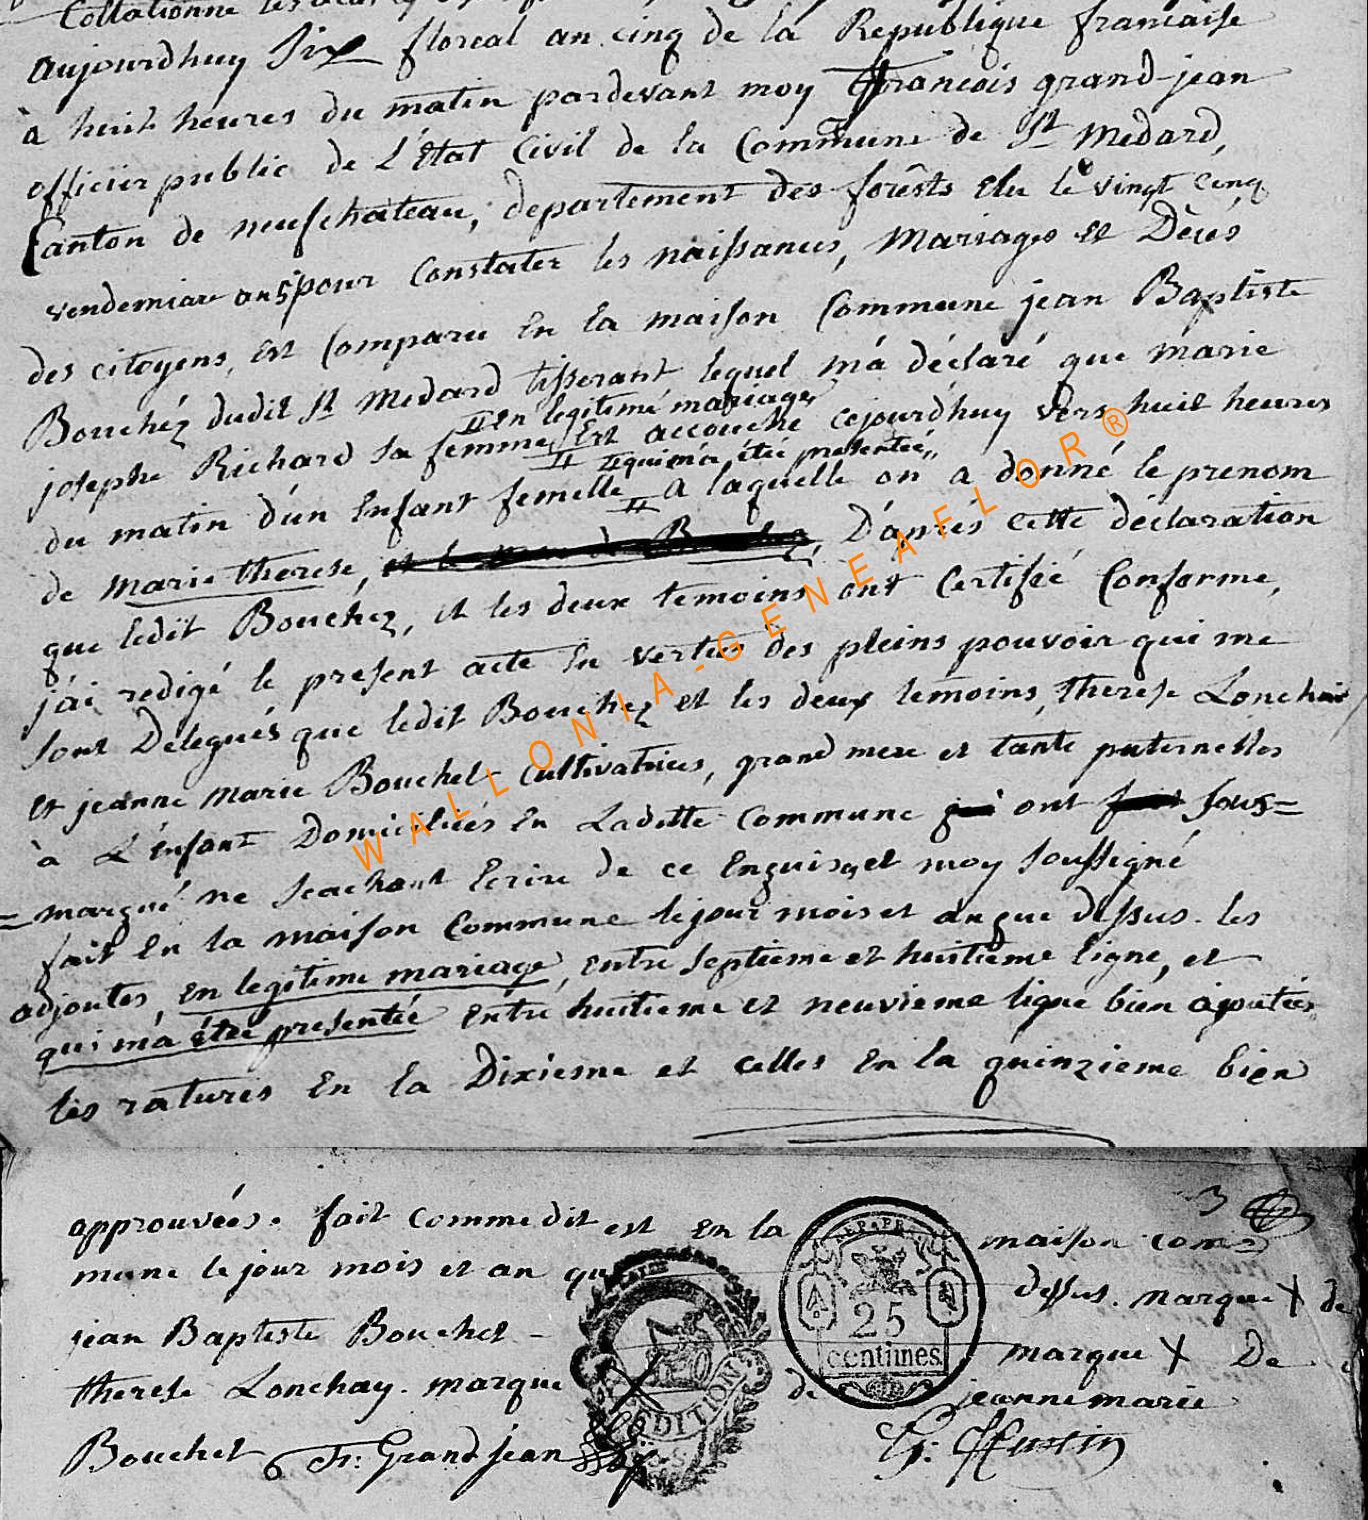 Collationné les
aujourdhuy Six floreal an cinq de la Republique francaise
à huit heures du matin pardevant moy Francois grand-jean
officier public de L'État Civil de la Commune de St Medard,
Canton de neufchateau, departement des forêsts Elu le vingt cinq
vendemiare an 5 pour Constater les naissances, Mariages et Décés
des citoyens, est Comparu En La maison Commune jean Baptiste
Bouchéz dudit St Medard tisserant lequel m'a déclaré que marie
en legitime mariage
josephe Richard sa femme Est accouché cejourdhuy vers huit heures
qui m'a étée presentée
du matin d'un Enfant femelle A laquelle on a donné le prenom
de marie therese, D'aprés cette déclaration
que ledit Bouchéz, et les deux temoins ont Certifié Conforme,
j'ai redigé le present acte En vertus des pleins pouvoir qui me
sont Delegués que ledit Bouchez et les deux temoins, therese Lonchai
et jeanne marie Bouchet cultivatrices, grand mere et tante paternelles
à L'Enfant Domiciliées En Ladette Commune ont sous=
=marqué ne scachant Ecrire de ce Enquis, et moy soussigné
fait En la maison Commune le jour mois et an que dessus. les
adjoutes, en legitime mariage, entre septieme et huitieme ligne, et
qui m'a étée presentée entre huitieme et neuvieme ligne bien ajoutées
les ratures En la Dixiesme et celles En la quinzieme bien
approuvées. fait comme dit est en la maison com=
3
mune le jour mois et an que dessus. marque X de
jean Baptiste Bouchet - marque X De
therese Lonchay. marque X de jeanne marie
Bouchet Fr: Grand jean
REP. FR.
25
centimes
WALLONIA-GENEAFLOR®